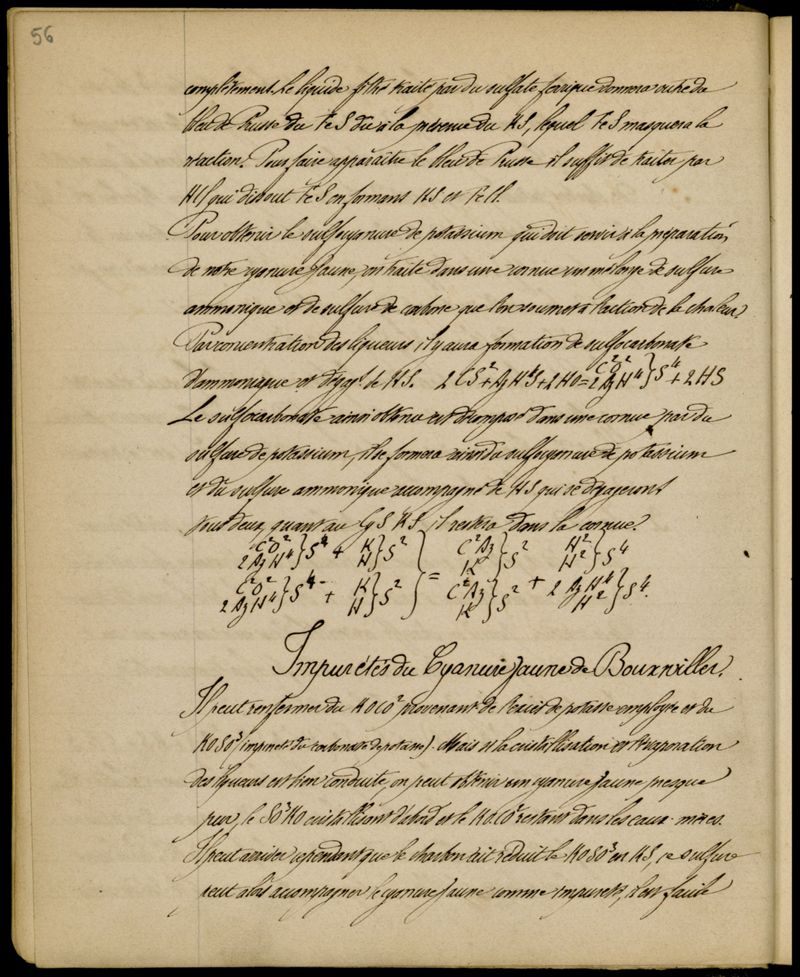 56
complètement. Le liquide filtré traité par du sulfate ferrique donnera outre du
bleu de Prusse du FeS dû à la présence du KS, lequel FeS masquera la
réaction. Pour faire apparaître le bleu de Prusse il suffit de traiter par
HCl qui dissout FeS en formant HS et FeCl.
Pour obtenir le sulfocyanure de potassium qui doit servir à la préparation
de notre cyanure jaune, on traite dans une cornue un mélange de sulfure
ammonique et de sulfure de carbone que l'on soumet à l'action de la chaleur.
Par concentration des liqueurs, il y aura formation de sulfocarbonate
d'ammoniaque et dégagt de HS. 2CS² + AzH⁴S + 2HO = C²O² 2AzH⁴}S⁴ + 2HS
Le sulfocarbonate ainsi obtenu est décomposé dans une cornue par du
sulfure de potassium, il se formera ainsi du sulfocyanure de potassium
et du sulfure ammonique accompagné de HS qui se dégageront
tous deux, quant au CyS KS, il restera dans la cornue.
C²O² 2AzH⁴}S⁴ + K H}S² } C²Az K}S² H² H²}S⁴
C²O² 2AzH⁴}S⁴ + K H}S² } = C²Az K}S² + 2AzH⁴ H²}S⁴.
Impuretés du Cyanure jaune de Bouxwiller.
Il peut renfermer du KOCO² provenant de l'excès de potasse employée et du
KOSO³ (impureté du carbonate de potasse). Mais si la cristallisation et évaporation
des liqueurs est bien conduite, on peut obtenir un cyanure jaune presque
pur, le SO³KO cristallisant d'abord et le KOCO² restant dans les eaux-mères.
Il peut arriver cependant que le charbon ait réduit le KOSO³ en KS, ce sulfure
peut alors accompagner le cyanure jaune comme impureté, il est facile